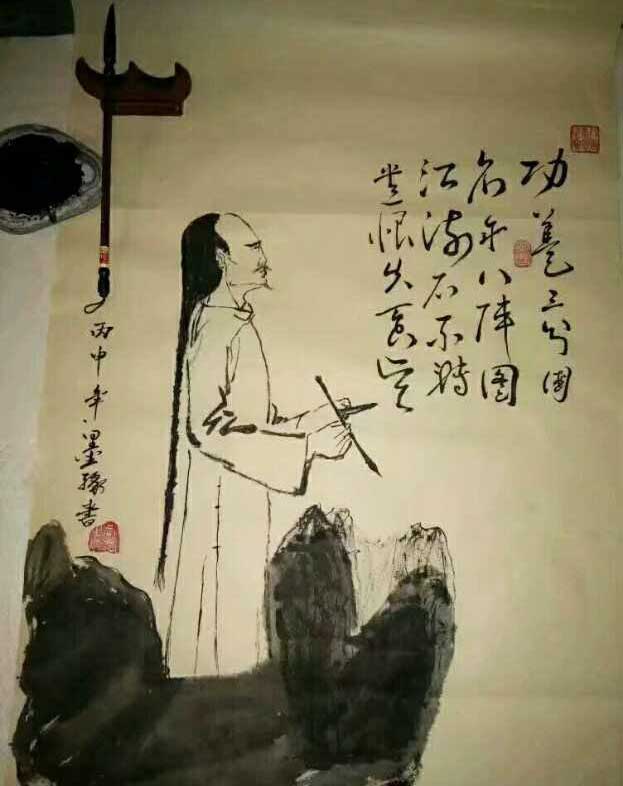 功蓋三分国
名成八陣图
江流石不轉
遗恨失吞吴
丙申年墨缘書